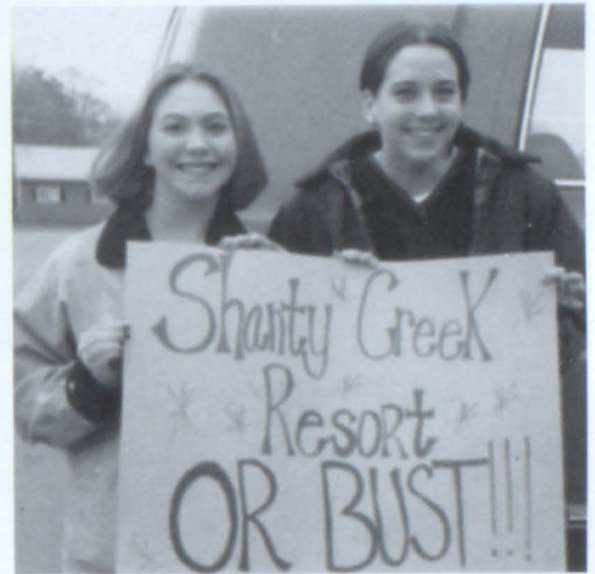 Shanty Creek
Resort
OR BUST!!!